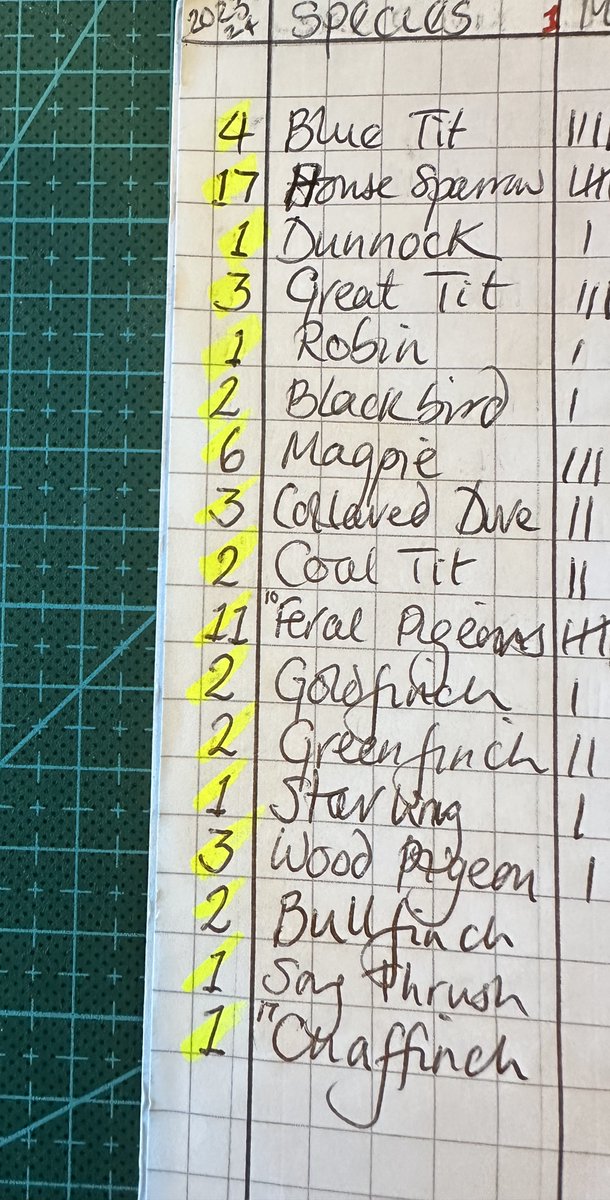 2023 24 Species 1 M
4 Blue Tit IIII
17 House Sparrow
1 Dunnock I
3 Great Tit III
1 Robin I
2 Blackbird I
6 Magpie III
3 Collared Dove II
2 Coal Tit II
11 10 Feral Pigeons
2 Goldfinch I
2 Greenfinch II
1 Starling I
3 Wood Pigeon I
2 Bullfinch
1 Song Thrush
1 17 Chaffinch